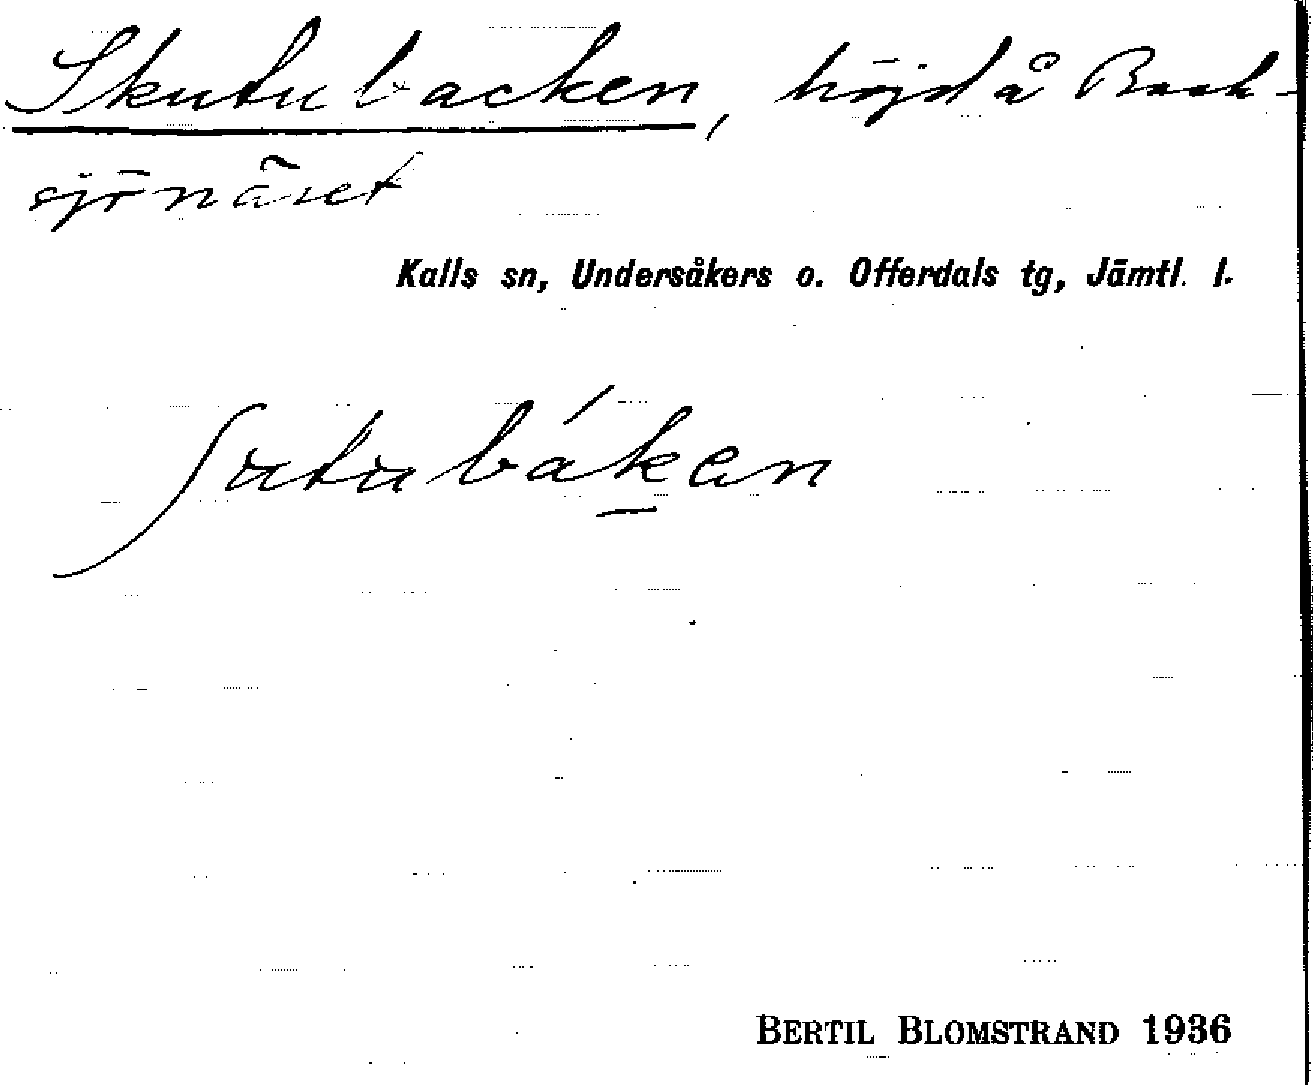 Skutubacken, höjd å Back-
sjönäset
Kalls sn, Undersåkers o. Offerdals tg, Jämtl. l.
ʃutubák̲en
BERTIL BLOMSTRAND 1936